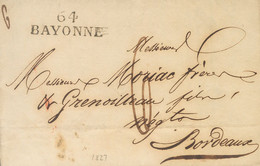 6
64
BAYONNE
Messieurs
Messieurs Moriac frères
& Grenouilleau fils,
négts
Bordeaux
1827